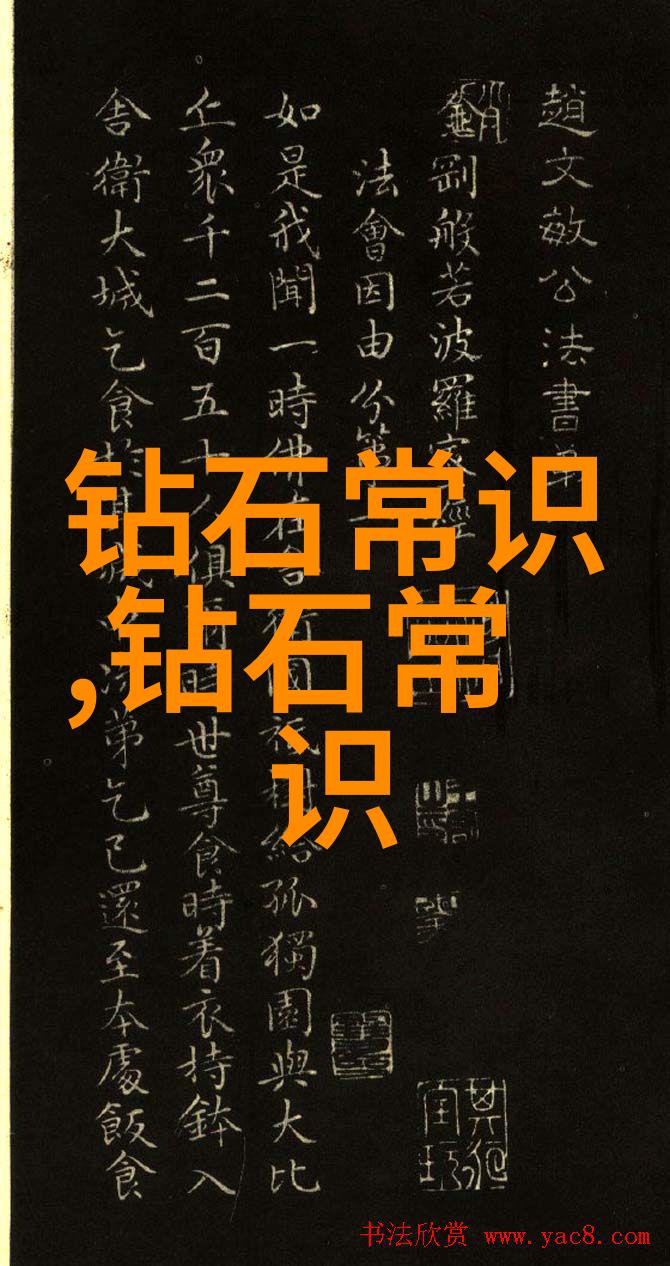 趙文敏公法書第
金剛般若波羅蜜經
法會因由分第一
如是我聞一時佛在舍衛國祇樹給孤獨園與大比
丘眾千二百五十人俱爾時世尊食時着衣持鉢入
舍衛大城乞食於其城中次第乞已還至本處飯食
钻石常识
,钻石常
识
书法欣赏 www.yac8.com